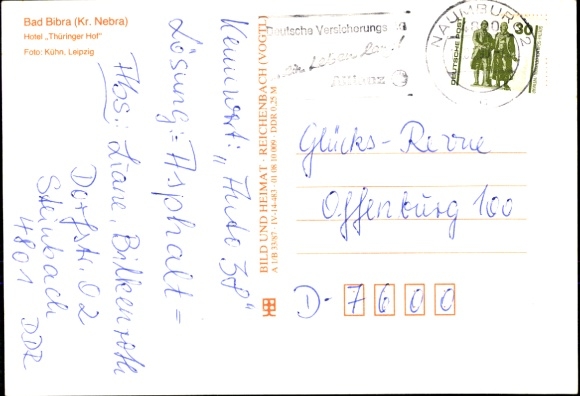 Bad Bibra (Kr. Nebra)
Hotel „Thüringer Hof"
Foto: Kühn, Leipzig
Kennwort: „Auto 38"
Lösung: = Asphalt =
Abs.: Liane, Bilkenroth
Dorfstr. 02
Steinbach
4801 DDR
BILD UND HEIMAT · REICHENBACH (VOGTL.)
A 1/B 33/87 · IV-14-483 · 01 08 10 009 · DDR 0,25 M
Deutsche Versicherungs
Allianz
NAUMBURG 2
DEUTSCHE POST
30
Glücks-Revue
Offenburg 100
D-7600